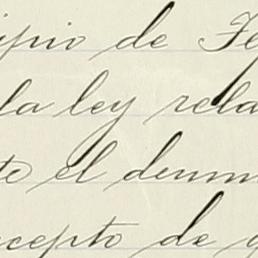 ipio de Fe
la ley rela
te el denun
ncepto de